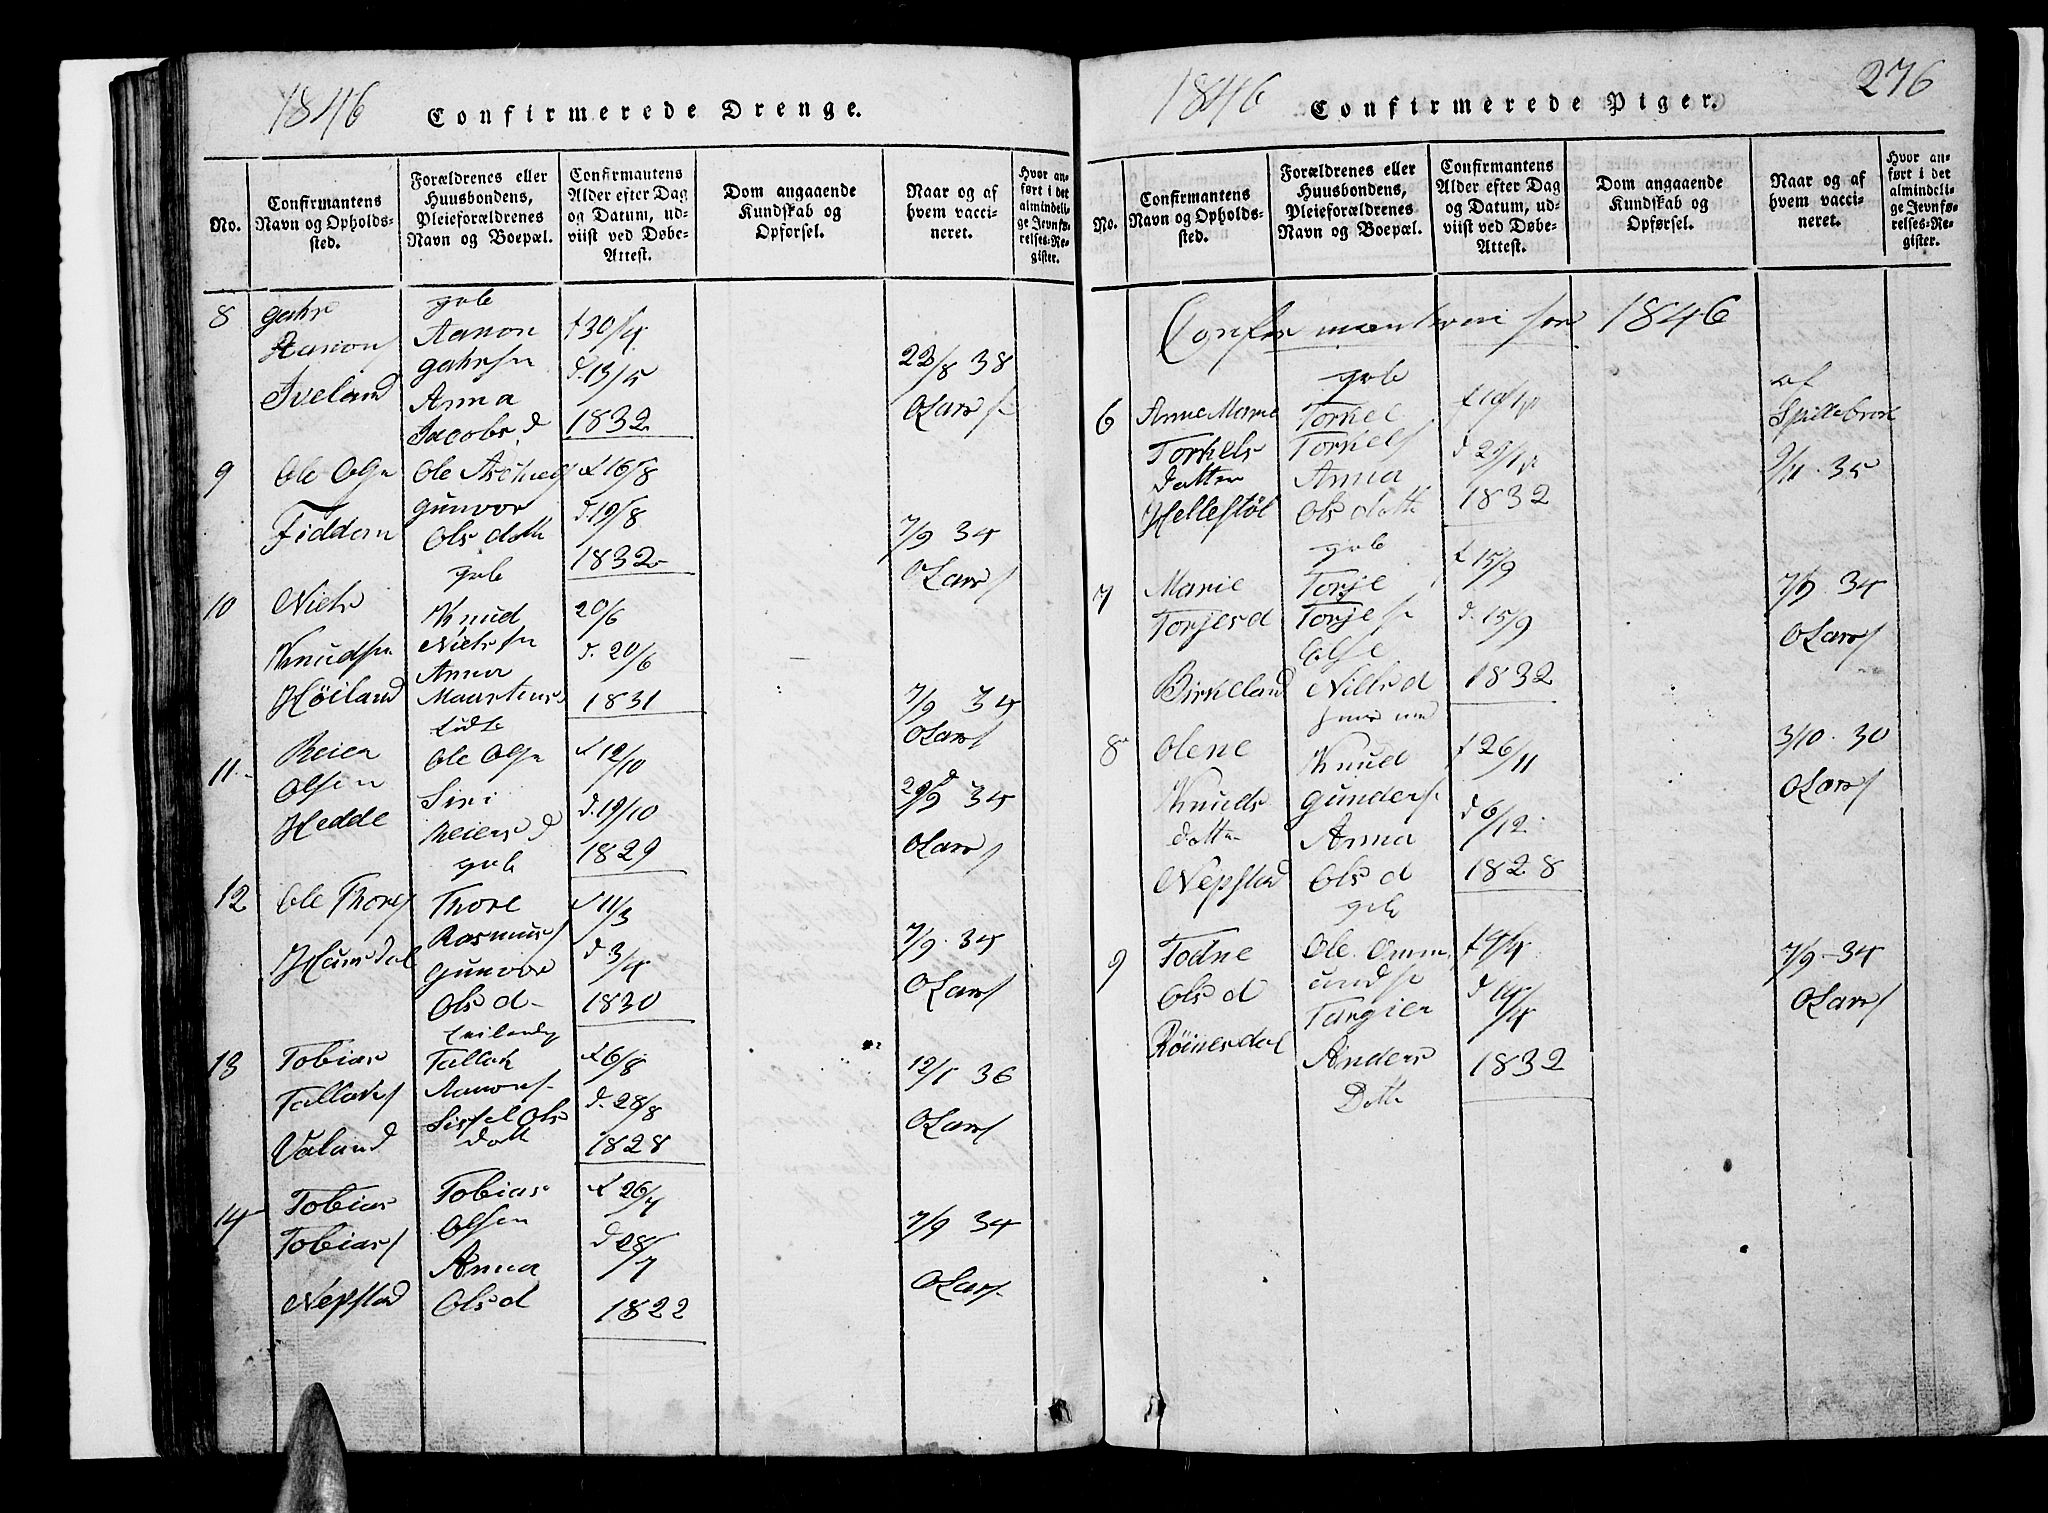 1846
Confirmerede Drenge.
No.
Confirmantens
Navn og Opholds-
sted.
Forældrenes eller
Huusbondens,
Pleieforældrenes
Navn og Boepæl.
Confirmantens
Alder efter Dag
og Datum, ud-
viist ved Døbe-
Attest.
Dom angaaende
Kundskab og
Opførsel.
Naar og af
hvem vacci-
neret.
Hvor an-
ført i det
almindeli-
ge Jevnfø-
relses-Re-
gister.
8
Aanons
Iveland
Aanon
Anna
Jacobs d
f 30/4
d. 13/5
1832
22/8 38
OLars
9
Ole Ols
Fiddan
Ole
Gunvor
Ols datt
f 16/8
d. 19/8
1832
7/9 34
OLars
10
Niels
Knudsen
Høiland
Knud
Nielsen
Anna
20/6
d. 20/6
1831
7/9 34
OLars
11
Reier
Olsen
Hedde
Ole Ols
Siri
Reiers d
f 12/10
d. 19/10
1829
29/9 34
OLars
12
Ole Thores
Thore
Rasmus
Gunvor
Ols d
f 11/3
d 3/4
1830
7/9 34
OLars
13
Tobias
Tallaks
Valand
Tallak
Aanons
Sissel Ols
datt
f 6/8
d. 28/8
1828
12/1 36
OLars
14
Tobias
Tobias
Nepstad
Tobias
Olsen
Anna
Ols d
f 26/7
d 28/7
1822
7/9 34
OLars
1846
Confirmerede Piger.
276
No.
Confirmantens
Navn og Opholds-
sted.
Forældrenes eller
Huusbondens,
Pleieforældrenes
Navn og Boepæl.
Confirmantens
Alder efter Dag
og Datum, ud-
viist ved Døbe-
Attest.
Dom angaaende
Kundskab og
Opførsel.
Naar og af
hvem vacci-
neret.
Hvor an-
ført i det
almindeli-
ge Jevnfø-
relses-Re-
gister.
for 1846
6
Anne Marie
Torkels
datter
Hellestøl
Torkel
Torkels
Anna
Ols datt
1832
af
9/11 35
7
Marie
Torjes d
Birkeland
Torje
Torjes
Nills d
f 15/9
d. 15/9
1832
7/9 34
OLars
8
Olene
Knuds
datter
Nepstad
Knud
Gunders
Anna
Ols d
f 26/11
d 6/12
1828
3/10 30
OLars
9
Todne
Ols d
Røinesdal
Ole Omm
unds
Targier
Anders
Datte
f 9/4
d 14/4
1832
7/9 34
OLars